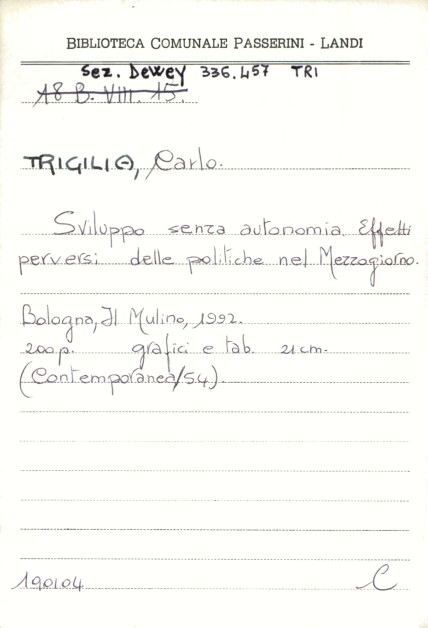 BIBLIOTECA COMUNALE PASSERINI - LANDI
Sez. Dewey 336.457 TRI
18 B. VIII. 15.
TRIGILIA, Carlo.
Sviluppo senza autonomia. Effetti
perversi delle politiche nel Mezzogiorno.
Bologna, Il Mulino, 1992.
200 p. grafici e tab. 21 cm.
(Contemporanea/54).
190104 C